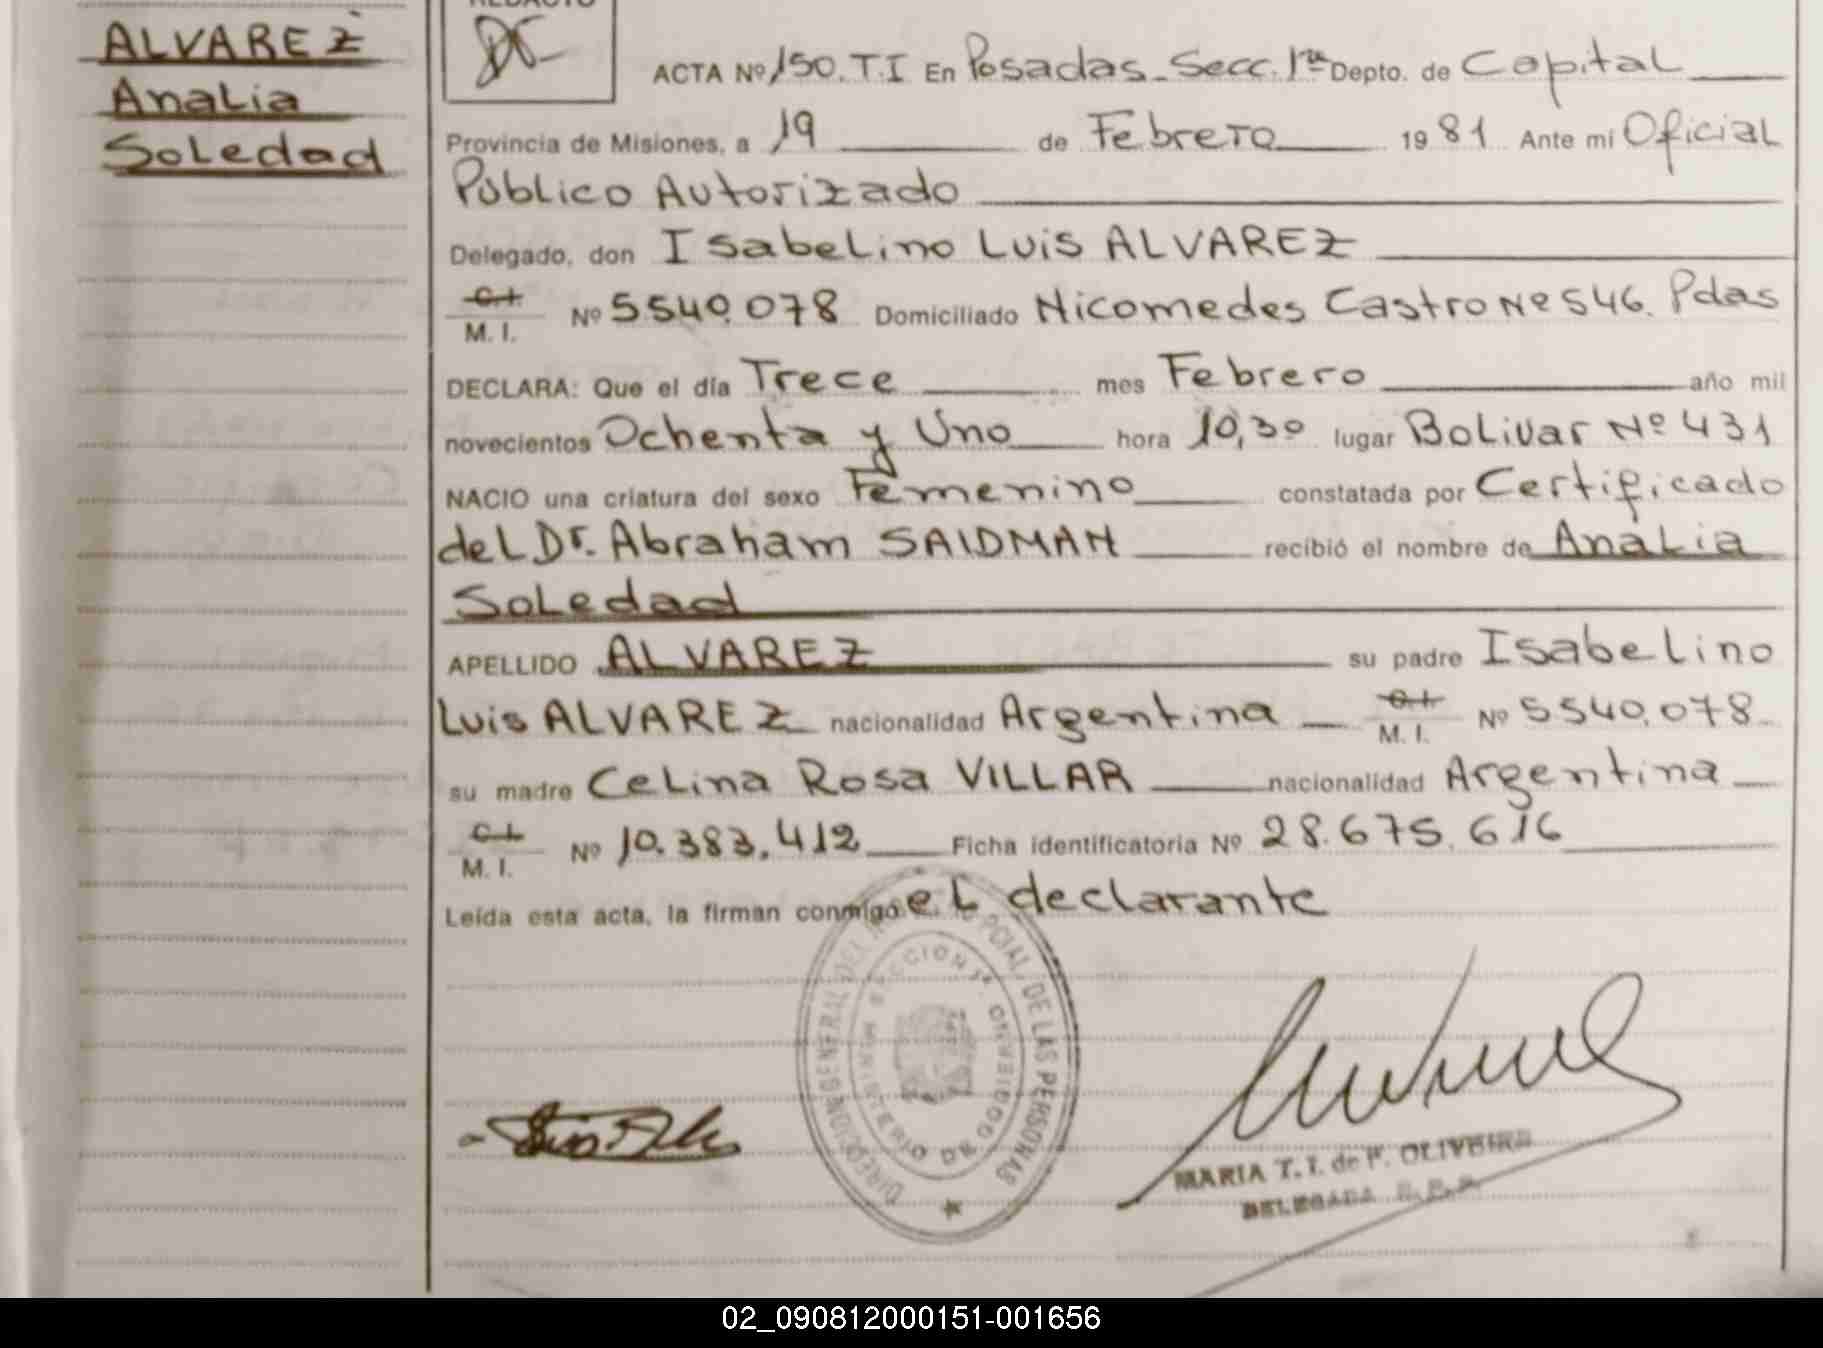 ALVAREZ
Analia
Soledad
REDACTO
ACTA Nº 150. T.I En Posadas. Secc. 1ra Depto. de Capital
Provincia de Misiones, a 19 de Febrero 1981 Ante mi Oficial
Público Autorizado
Delegado, don Isabelino Luis ALVAREZ
C.I.
M. I. Nº 5.540.078 Domiciliado Nicomedes Castro Nº 546. Pdas
DECLARA: Que el día Trece mes Febrero año mil
novecientos Ochenta y Uno hora 10,30 lugar Bolivar Nº 431
NACIO una criatura del sexo Femenino constatada por Certificado
del Dr. Abraham SAIDMAN recibió el nombre de Analia
Soledad
APELLIDO ALVAREZ su padre Isabelino
Luis ALVAREZ nacionalidad Argentina C.I. M. I. Nº 5540.078
su madre Celina Rosa VILLAR nacionalidad Argentina
C.I.
M. I. Nº 10.383.412 Ficha identificatoria Nº 28.675.616
Leída esta acta, la firman conmigo el declarante
DIRECCION GENERAL DEL PCIAL. DE LAS PERSONAS
SECCION 1ª
MINISTERIO DE GOBIERNO
MARIA T. I. de F. OLIVEIRA
DELEGADA
02_090812000151-001656